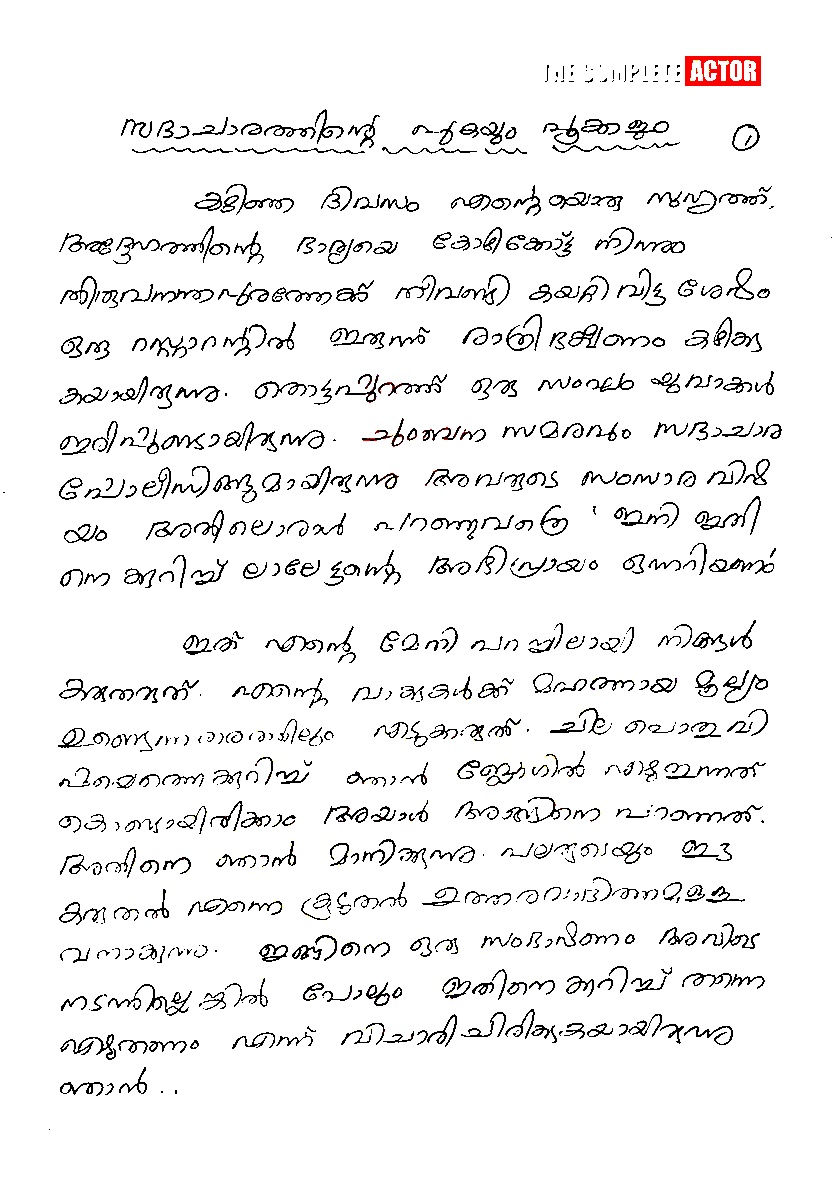 THE COMPLETE ACTOR
സദാചാരത്തിന്റെ പുകയും പൂക്കളും 1
കഴിഞ്ഞ ദിവസം എന്റെയൊരു സുഹൃത്ത്,
അദ്ദേഹത്തിന്റെ ഭാര്യയെ കോഴിക്കോട്ട് നിന്നു
തിരുവനന്തപുരത്തേക്ക് തീവണ്ടി കയറ്റി വിട്ട ശേഷം
ഒരു റസ്റ്റാറന്റിൽ ഇരുന്ന് രാത്രി ഭക്ഷണം കഴിക്കു
കയായിരുന്നു. തൊട്ടപ്പുറത്ത് ഒരു സംഘം യുവാക്കൾ
ഇരിപ്പുണ്ടായിരുന്നു. ചുംബന സമരവും സദാചാര
പോലീസിങ്ങുമായിരുന്നു അവരുടെ സംസാര വിഷ
യം അതിലൊരാൾ പറഞ്ഞുവത്രെ ' ഇനി ഇതി
നെ കുറിച്ച് ലാലേട്ടന്റെ അഭിപ്രായം ഒന്നറിയണം
ഇത് എന്റെ മേനി പറച്ചിലായി നിങ്ങൾ
കരുതരുത്. എന്റെ വാക്കുകൾക്ക് മഹത്തായ മൂല്യം
ഉണ്ടെന്ന എടുക്കരുത്. ചില പൊതു വി
ഷയത്തെക്കുറിച്ച് ഞാൻ ബ്ലോഗിൽ എഴുതുന്നത്
കൊണ്ടായിരിക്കാം അയാൾ അങ്ങിനെ പറഞ്ഞത്.
അതിനെ ഞാൻ മാനിക്കുന്നു. പലരുടെയും ഇത്
കരുതൽ എന്നെ കൂടുതൽ ഉത്തരവാദിത്തമുള്ള
വനാക്കുന്നു. ഇങ്ങിനെ ഒരു സംഭാഷണം അവിടെ
നടന്നില്ലെങ്കിൽ പോലും ഇതിനെക്കുറിച്ച് തന്നെ
എഴുതണം എന്ന് വിചാരിച്ചിരിക്കുകയായിരുന്നു
ഞാൻ . .